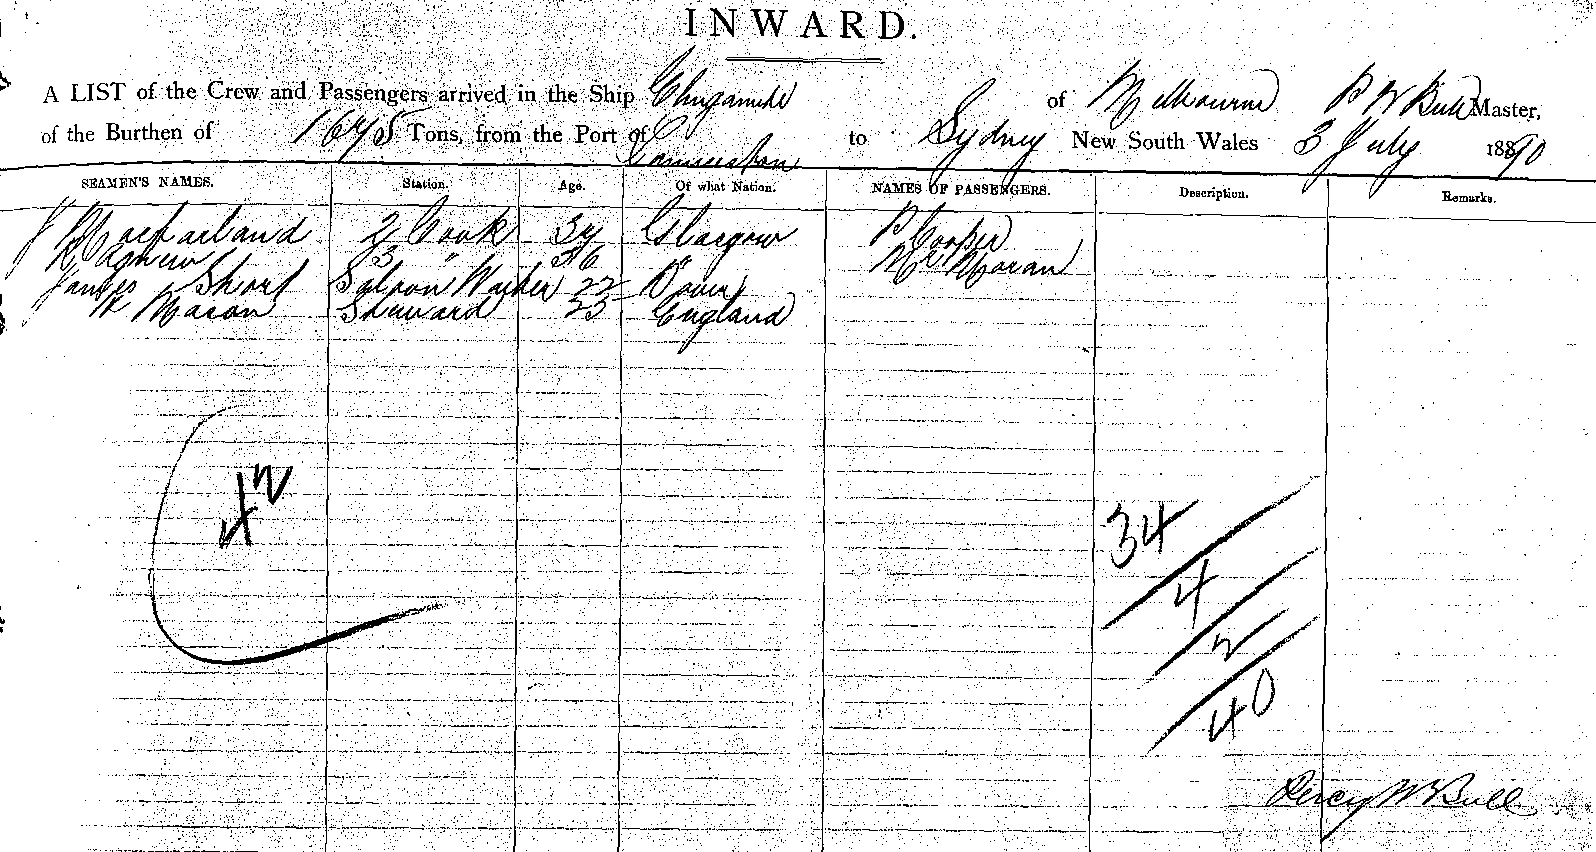 INWARD.
A LIST of the Crew and Passengers arrived in the Ship of Melbourne P W Bull Master,
of the Burthen of Tons, from the Port of Launceston to Sydney New South Wales 3 July 18890
SEAMEN'S NAMES. Station. Age. Of what Nation. NAMES OF PASSENGERS. Description. Remarks.
J Macfarland 2 Cook 34 Glasgow P Cooper
R Agnew 3 " 36 " Mrs Moran
James Short Saloon Waiter 22 Dover
W Mason Steward 25 England
42
34
4
2
40
Percy W Bull